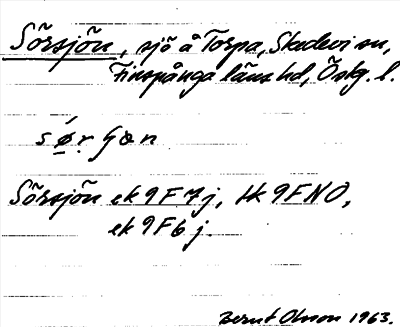 Sörsjön, sjö å Torpa, Skedevi sn,
Finspånga läns hd, Ösg. l.
sø̱ṛʃɷn
Sörsjön ek 9F7j, tk 9FNO,
ek 9F6j.
Bernt Olsson 1963.